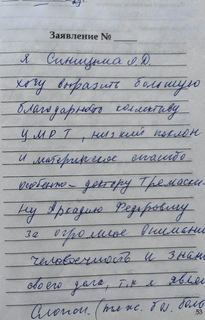 Заявление № ____
Я Синицина Л.Д.
хочу выразить большую
благодарность коллективу
ЦМРТ, низкий поклон
и материнское спасибо
особенно – доктору
Аркадию Федоровичу
за огромное внимание
человечность и знание
своего дела, т.к я
53